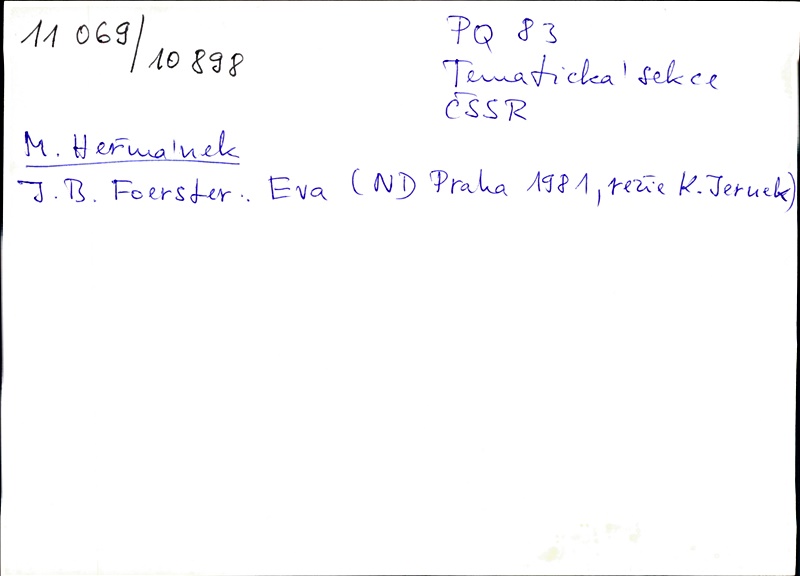 11 069/10 898
PQ 83
Tematická sekce
ČSSR
M. Heřmánek
J. B. Foerster: Eva (ND Praha 1981, režie K. Jernek)